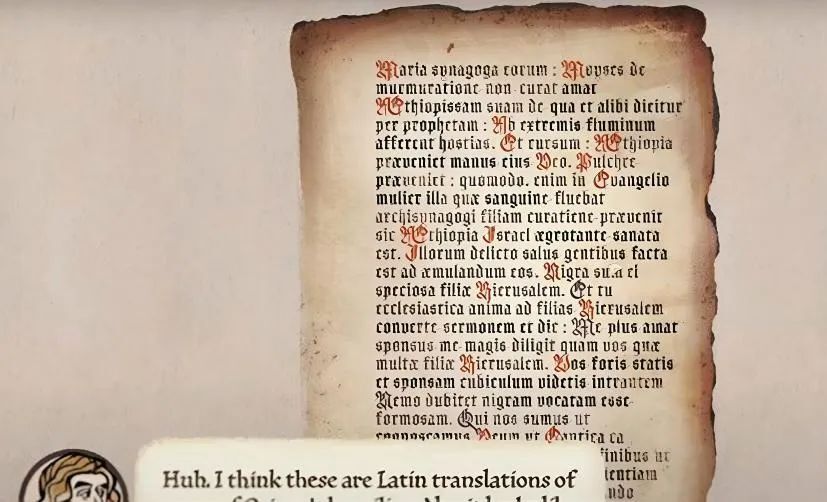 Maria synagoga eorum : Moyses de
murmuratione non curat amat
Æthiopissam suam de qua et alibi dicitur
per prophetam : Ab extremis fluminum
afferent hostias. Et rursum : Æthiopia
præveniet manus eius Deo. Pulchre
præveniet : quomodo. enim in Evangelio
mulier illa quæ sanguine fluebat
archisynagogi filiam curatione prævenit
sic Æthiopia Israel ægrotante sanata
est. Illorum delicto salus gentibus facta
est ad æmulandum eos. Nigra et
speciosa filiæ Hierusalem. Et tu
ecclesiastica anima ad filias Hierusalem
converte sermonem et dic : Me plus amat
sponsus me magis diligit quam vos quæ
multæ filiæ Hierusalem. Vos foris statis
et sponsam cubiculum videtis intrantem
Nemo dubitet nigram vocatam esse
formosam. Qui nos sumus ut
cognoscamus Deum ut Cantica ca
finibus ut
Huh. I think these are Latin translations of